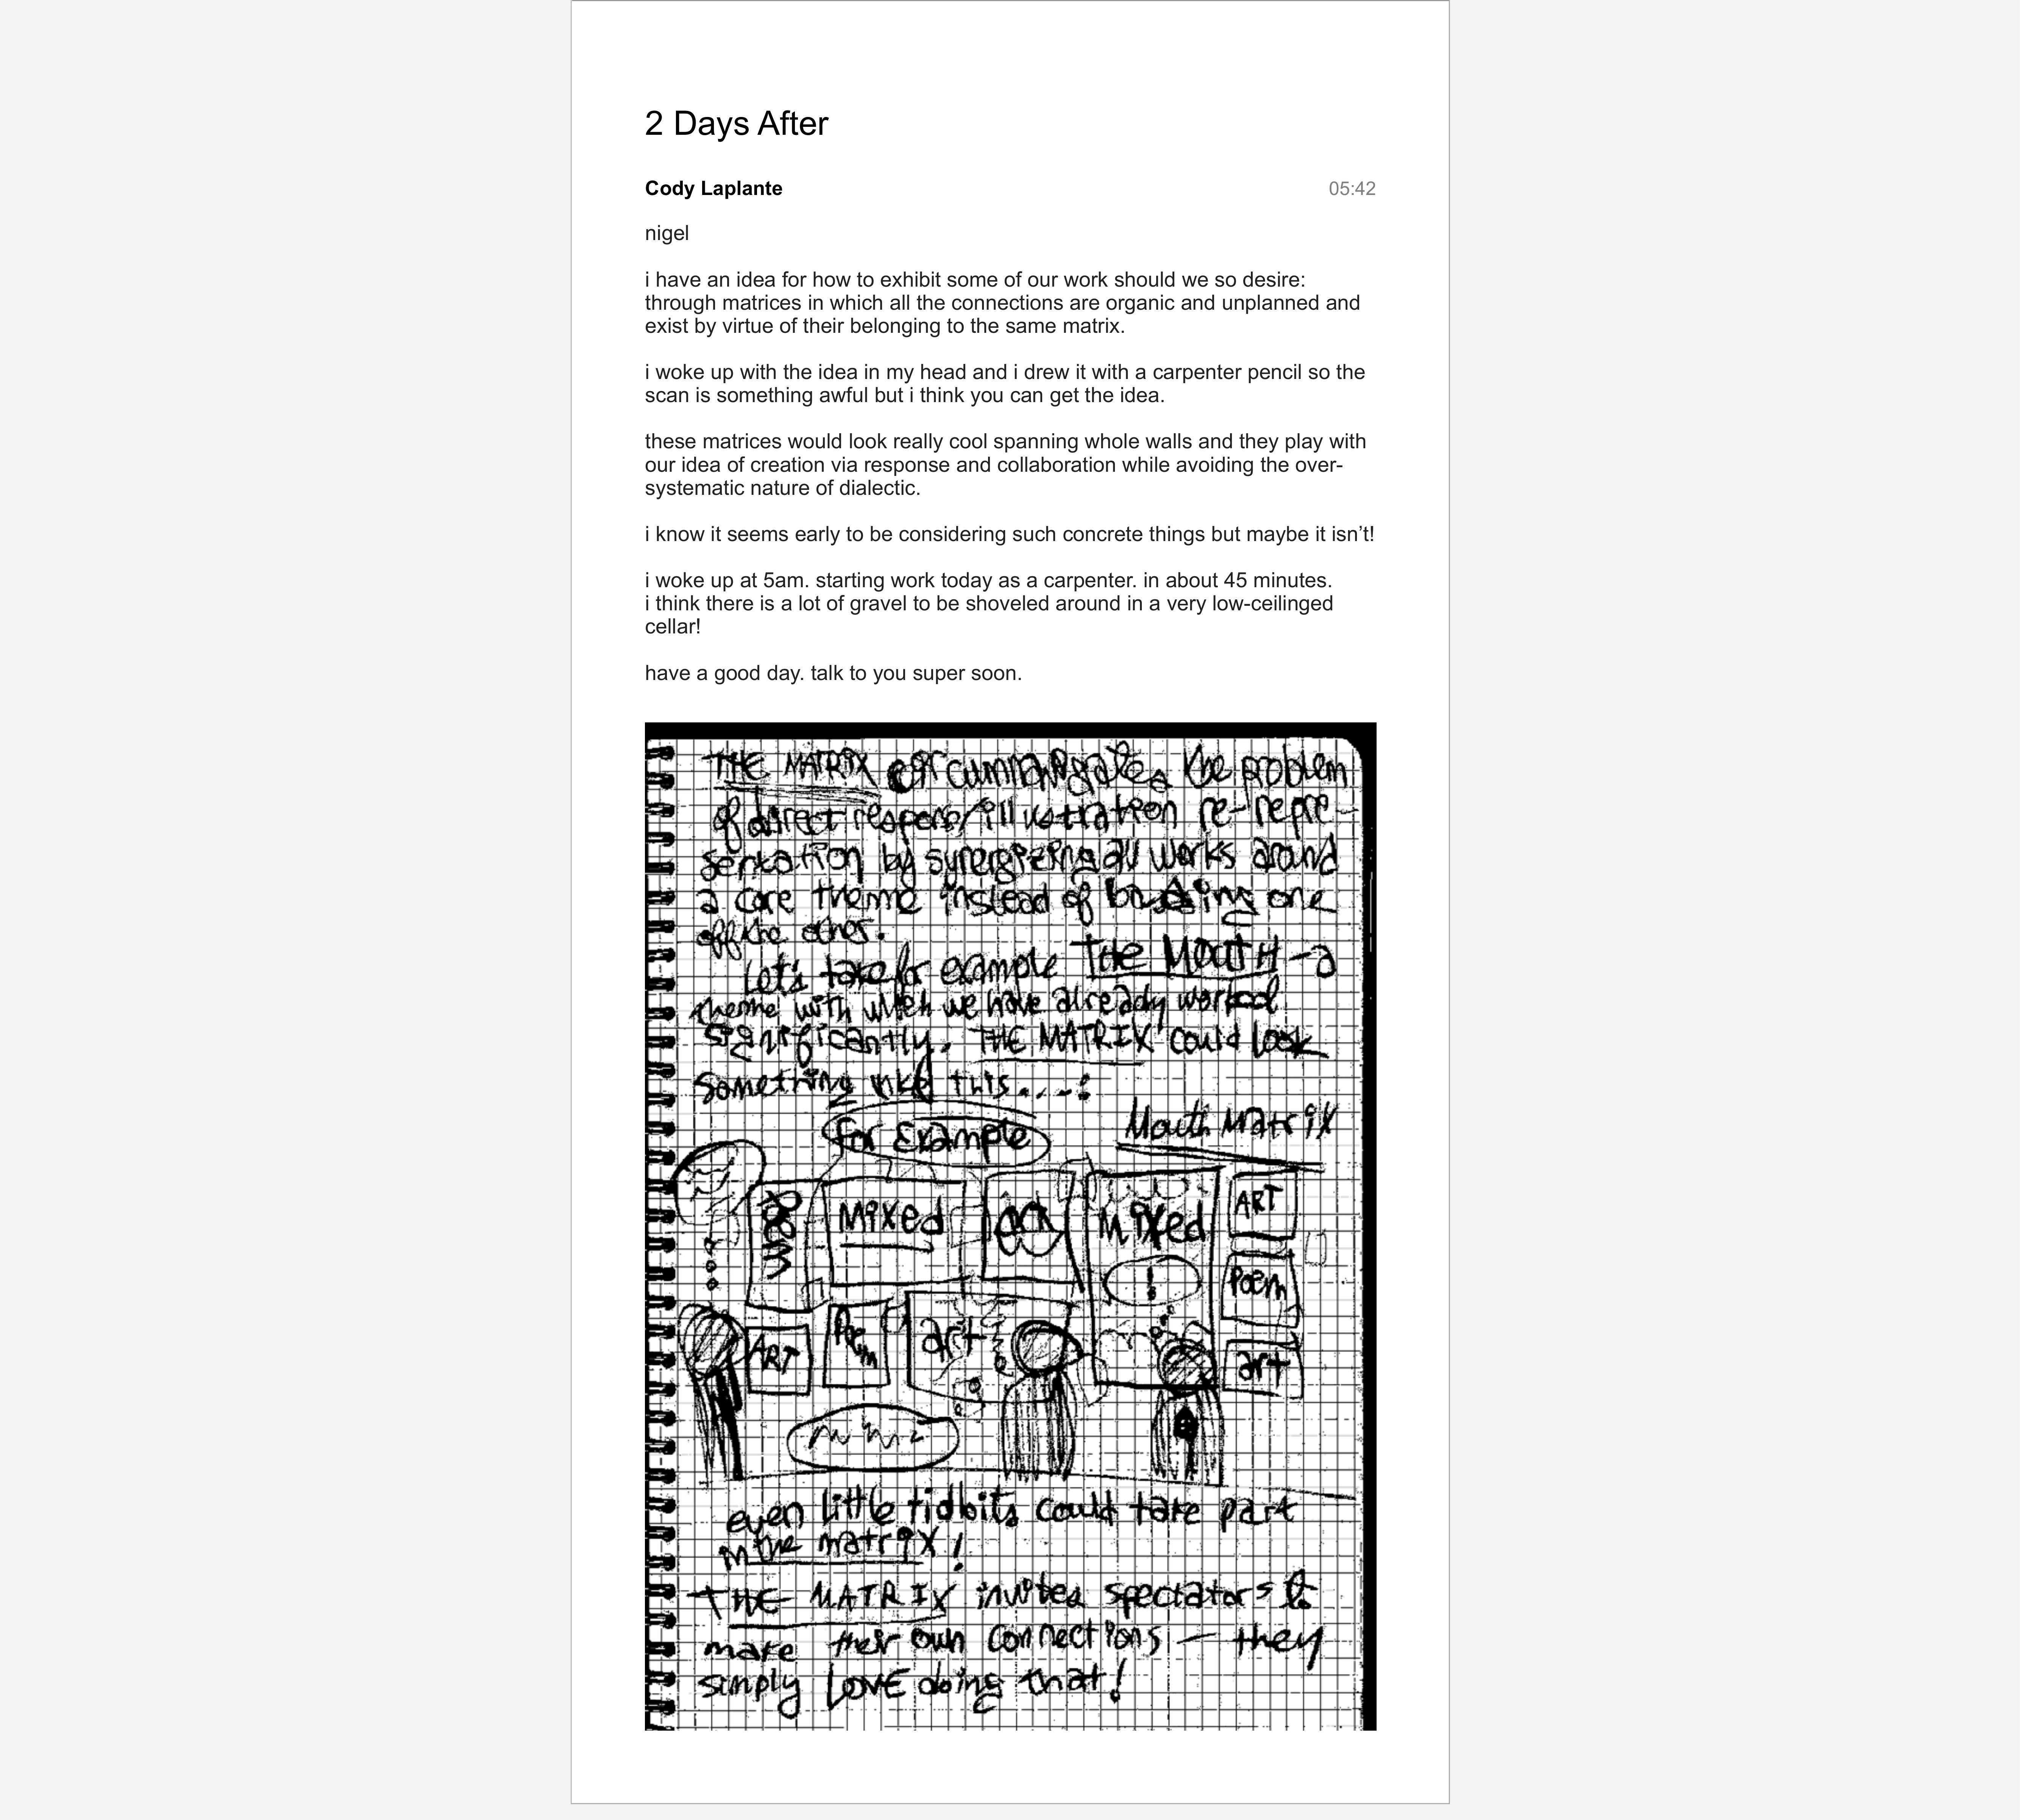 2 Days After
Cody Laplante 05:42
nigel
i have an idea for how to exhibit some of our work should we so desire:
through matrices in which all the connections are organic and unplanned and
exist by virtue of their belonging to the same matrix.
i woke up with the idea in my head and i drew it with a carpenter pencil so the
scan is something awful but i think you can get the idea.
these matrices would look really cool spanning whole walls and they play with
our idea of creation via response and collaboration while avoiding the over-
systematic nature of dialectic.
i know it seems early to be considering such concrete things but maybe it isn’t!
i woke up at 5am. starting work today as a carpenter. in about 45 minutes.
i think there is a lot of gravel to be shoveled around in a very low-ceilinged
cellar!
have a good day. talk to you super soon.
THE MATRIX the problem
of direct /illustration re-repre-
sentation by synergizing all works around
a core theme instead of basing one
off the other.
Let's take for example THE MOUTH - a
theme with which we have already worked
significantly. THE MATRIX could look
something like this....:
For Example
Mouth Matrix
Mixed
Mixed
ART
!
Poem
ART
Poem
art
art
even little tidbits could take part
in the matrix!
THE MATRIX invites spectators to
make their own connections — they
simply LOVE doing that!